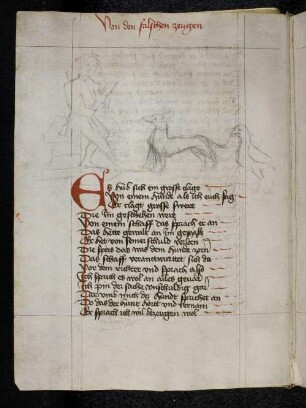 Von den falschen zeugen
Es hub sich ein grosse clage
Von einem hunde als ich euch sag
Er clagt grosse swere
Die im geschehen were
Von einem schaff das sprach er an
Das hette gewalt an im
Er het von seiner schuld verlorn
Die speis das was dem hunde zorn
Das schaff verantwurttet sich do
Vor dem richter und sprach also
Ich sprich es wol an alles
Ich pin der sache unschuldig gar
Der und mich der hundt sprichet an
Do das der hunt hort und vernam
Er sprach ich wil bezeugen wol